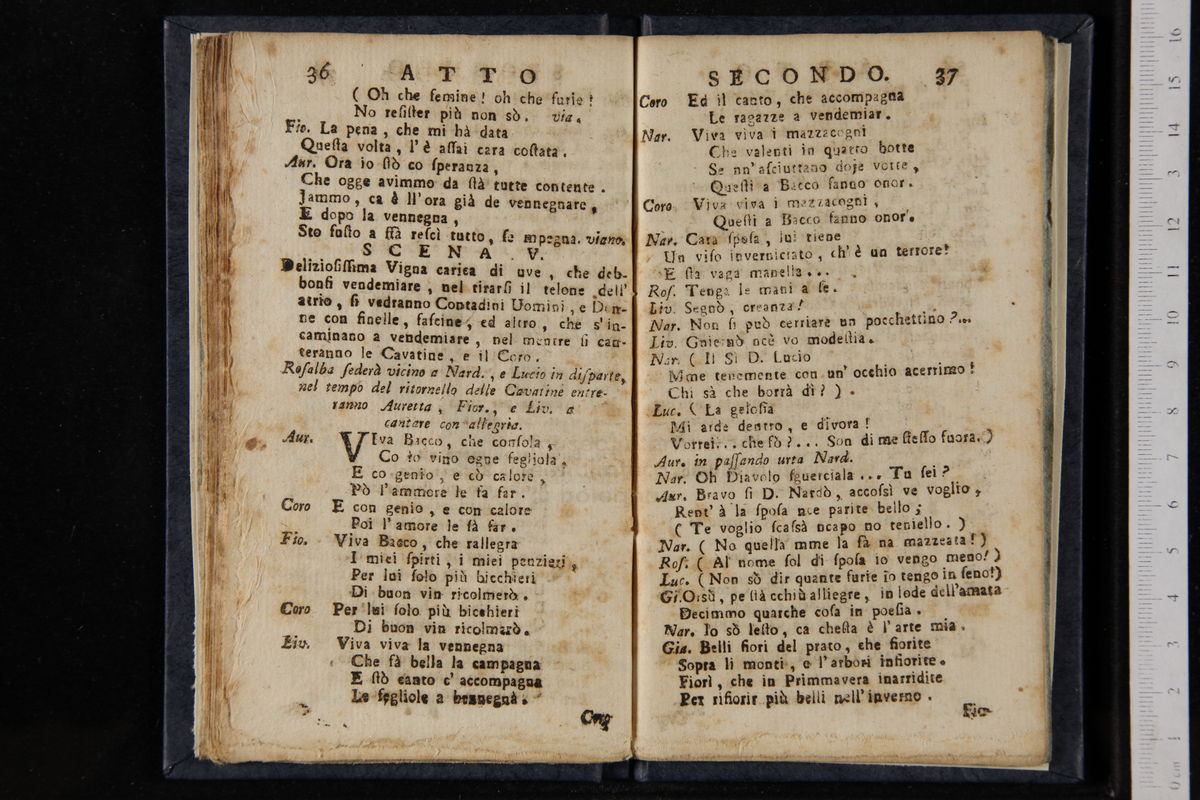 36 ATTO
( Oh che femine! oh che furie!
No reſiſter più non sò. via.
Fio. La pena, che mi hà data
Queſta volta, l'è aſſai cara coſtata.
Aur. Ora io ſtò co ſperanza,
Che ogge avimmo da ſtà tutte contente.
Jammo, ca è ll'ora già de vennegnare,
E dopo la vennegna,
Sto fuſto a ſſà reſcì tutto, ſe mpegna. viano.
SCENA V.
Delizioſiſſima Vigna carica di uve, che deb-
bonſi vendemiare, nel tirarſi il telone dell'
atrio, ſi vedranno Contadini Uomini, e Don-
ne con ſinelle, faſcine, ed altro, che s'in-
caminano a vendemiare, nel mentre ſi can-
teranno le Cavatine, e il Coro.
Roſalba ſederà vicino a Nard., e Lucio in diſparte,
nel tempo del ritornello delle Cavatine entre-
ranno Auretta, Fior., e Liv. a
cantare con allegria.
Aur. VIva Bacco, che conſola,
Co lo vino ogne fegliola,
E co genio, e cò calore,
Pò l'ammore le fa far.
Coro E con genio, e con calore
Poi l'amore le fà far.
Fio. Viva Bacco, che rallegra
I miei ſpirti, i miei penzieri,
Per lui ſolo più bicchieri
Di buon vin ricolmerò.
Coro Per lui ſolo più bicchieri
Di buon vin ricolmarò.
Liv. Viva viva la vennegna
Che fà bella la campagna
E ſtò canto c'accompagna
Le fegliole a bennegnà.
Coro
SECONDO. 37
Coro Ed il canto, che accompagna
Le ragazze a vendemiar.
Nar. Viva viva i mazzacogni
Che valenti in quatro botte
Se nn'aſciuttano doje votte,
Queſti a Bacco fanno onor.
Coro Viva viva i mazzacogni,
Queſti a Bacco fanno onor.
Nar. Cara ſpoſa, lui tiene
Un viſo inverniciato, ch'è un terrore!
E ſta vaga manella...
Roſ. Tenga le mani a ſe.
Liv. Segnò, creanza!
Nar. Non ſi può cerriare un pocchettino?...
Liv. Gniernò ncè vo modeſtia.
Nar. ( Il Sì D. Lucio
Mme tenemente con un'occhio acerrimo!
Chi sà che borrà dì? ).
Luc. ( La geloſia
Mi arde dentro, e divora!
Vorrei... che fò?... Son di me ſteſſo fuora.)
Aur. in paſſando urta Nard.
Nar. Oh Diavolo ſguerciala... Tu ſei?
Aur. Bravo ſi D. Nardò, accoſsì ve voglio,
Rent'à la ſpoſa nce parite bello;
( Te voglio ſcaſsà ncapo no teniello. )
Nar. ( No quella mme la fà na mazzeata! )
Roſ. ( Al nome ſol di ſpoſa io vengo meno! )
Luc. ( Non sò dir quante furie io tengo in ſeno!)
Gi. Orsù, pe ſtà cchiù alliegre, in lode dell'amata
Decimmo quarche coſa in poeſia.
Nar. Io sò leſto, ca cheſta è l'arte mia.
Gia. Belli fiori del prato, che fiorite
Sopra li monti, e l'arbori infiorite.
Fiorì, che in Primmavera inarridite
Per rifiorir più belli nell'inverno.
Fio-